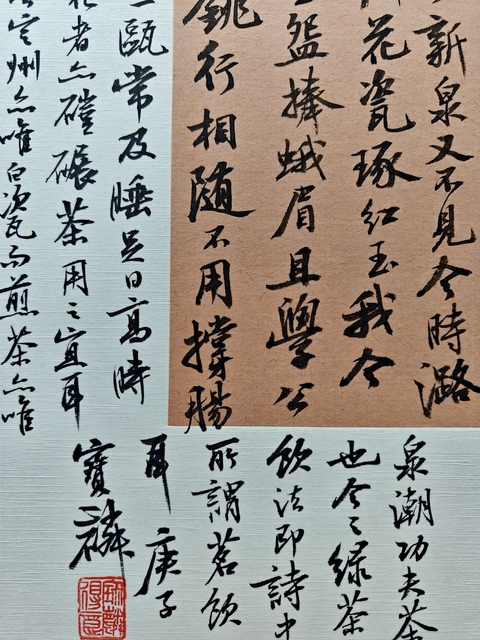 新泉又不見今時潞
花瓷琢紅玉我今
盌捧蛾眉且學公
銚行相隨不用撐腸
一甌常及睡足日高時
者亦磑碾茶用之宜耳
定州亦唯白瓷而煎茶亦唯
泉潮功夫茶
也今之綠茶
飲法即詩中
所謂茗飲
耳 庚子
寶麟